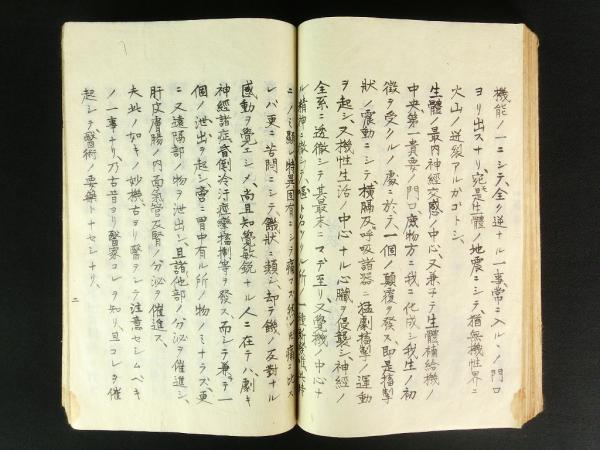 機能ノ一ニシテ、全ク逆ナル一事、常ニ入ルヽノ門口
ヨリ出スナリ、宛是生體ノ地震ニシテ、猶無機性界ニ
火山ノ迸裂アルカゴトシ、
生體ノ最内神經交感ノ中心、又兼テ生體補給機ノ
中央第一貴要ノ門口、庶物方ニ我ニ化成シ我生ノ初
徴ヲ受クルノ處ニ於テ一個ノ顛覆ヲ發ス、即是搐掣
狀ノ震動ニシテ、橫隔及呼吸諸器ニ猛劇搐掣ノ運動
ヲ起シ、又機性生活ノ中心ナル心臟ヲ侵襲シ、神經ノ
全系ニ透徹シテ其最末ニマデ至リ、又覺機ノ中心ナ
ル精神ニ徹シテ
レバ更ニ苦悶ニシテ饑狀ニ類シ、却テ饑ノ反對ナル
感動ヲ覺エシメ、尚且知覺敏銳ナル人ニ在テハ劇キ
神經諸症昏倒冷汗痙攣搐掣等ヲ發ス、而シテ兼テ一
個ノ泄出ヲ起シ、啻ニ胃中有ル所ノ物ノミナラズ更
ニ又遠隔部ノ物ヲ泄出シ、且諸他部ノ分泌ヲ催進シ、
肝皮膚腸ノ内面氣管及腎ノ分泌ヲ催進ス、
夫此ノ如キノ妙機古ヨリ醫ヲシテ注意セシムベキ
ノ一事ナリ、乃古昔ヨリ醫家コレヲ知リ、且コレヲ催
起シテ、醫術ノ要藥トナセシナリ、
二